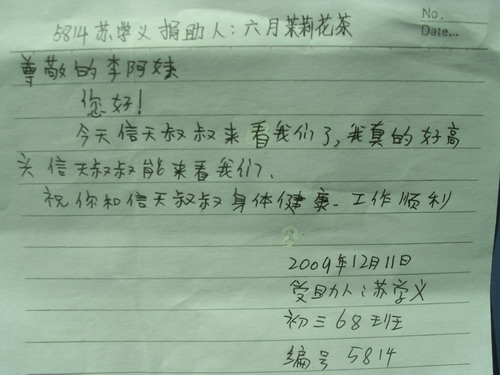 No.
Date...
5814 苏学义 捐助人：六月茉莉花茶
尊敬的李阿姨
您好！
今天信天叔叔来看我们了，我真的好高
兴 信天叔叔能来看我们、
祝你和信天叔叔身体健康、工作顺利
2009年12月11日
受助人：苏学义
初三68班
编号 5814